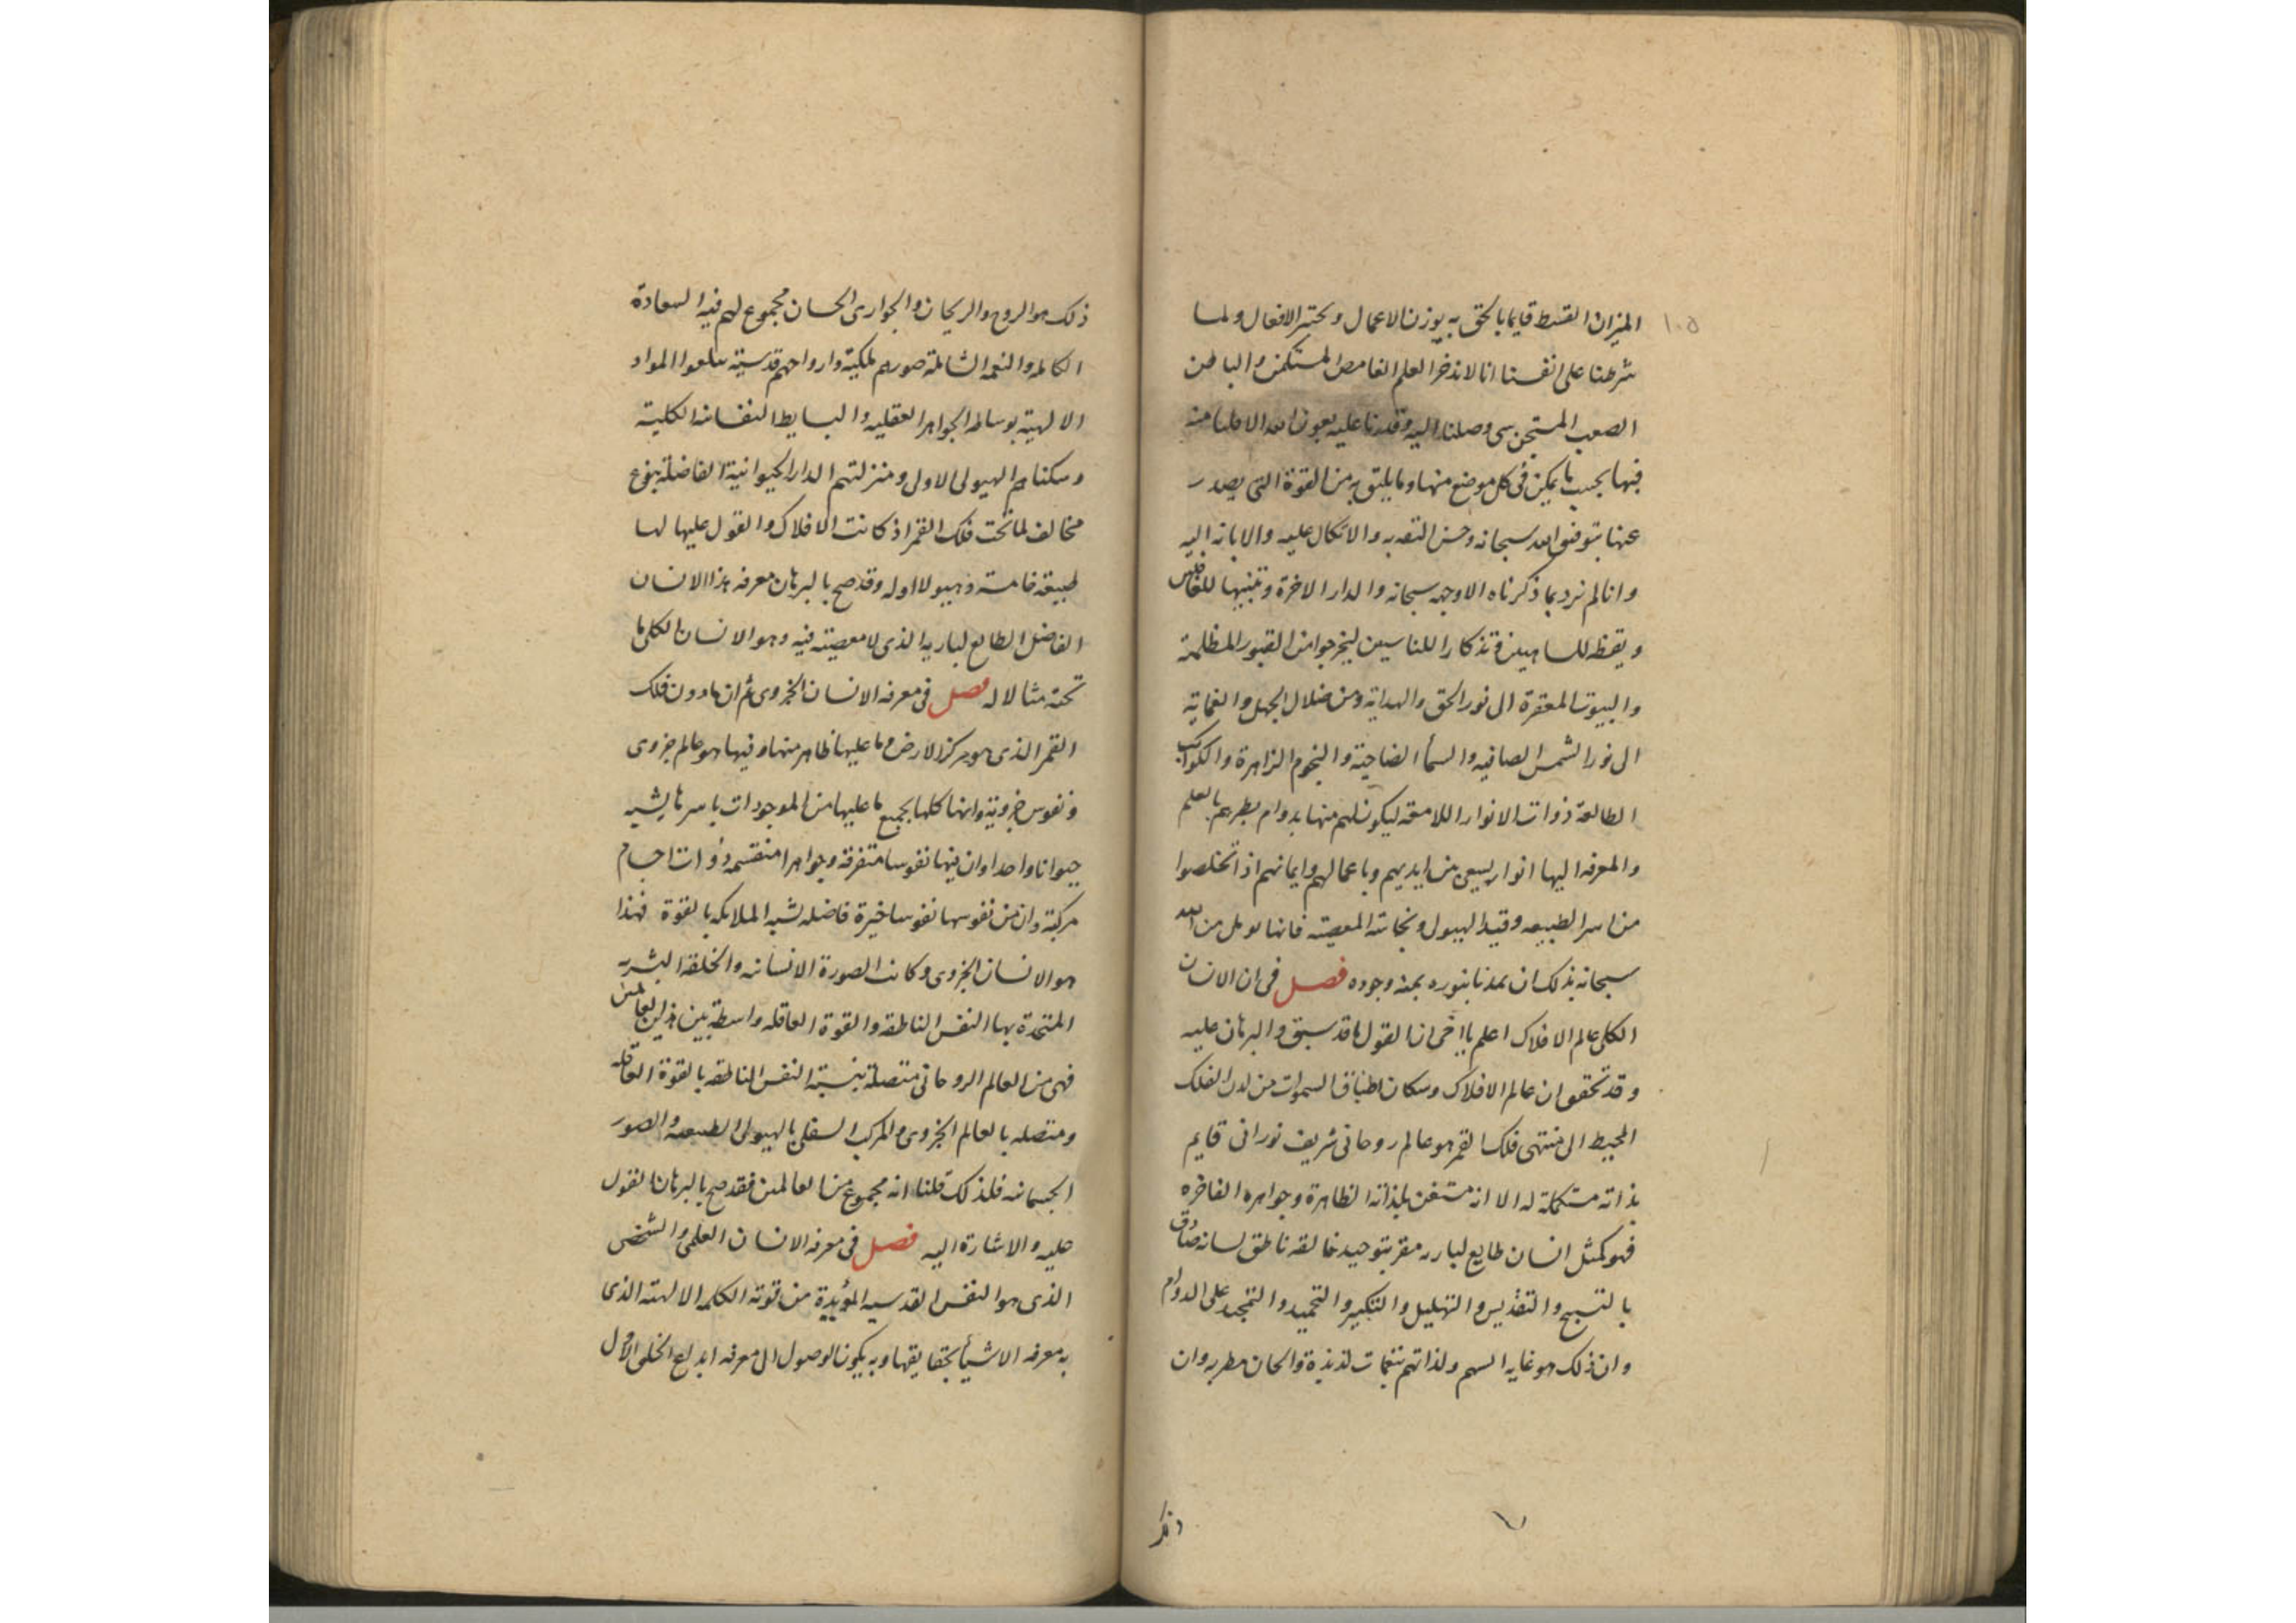 ١٠٥
الميزان القسط قايما بالحق به يوزن الاعمال ويختبر الافعال ولما
شرطنا على انفسنا انا لا نذخر العلم الغامض المستكن والباطن
الصعب المستجن شى وصلنا اليه وقدرنا عليه بعون الله الا قلنا منه
فيها بحسب ما يمكن فى كل موضع منها وما يليق به من القوة التى يصدر
عنها بتوفيق الله سبحانه وحسن الثقه به والاتكال عليه والانابه اليه
وانا لم نرد بما ذكرناه الا وجهه سبحانه والدار الاخرة وتنبيها للغافلين
ويقظه للساهين وتذكارا للناسين ليخرجوا من القبور المظلمة
والبيوت المقفرة الى نور الحق والهداية ومن ضلال الجهل والعماية
الى نور الشمس الصافيه والسمأ الضاحية والنجوم الزاهرة والكواكب
الطالعة ذوات الانوار اللامعة ليكون لهم منها بدوام نظرهم بالعلم
والمعرفه اليها انوار يسعى من ايديهم وباعمالهم وايمانهم اذا تخلصوا
من اسر الطبيعه وقيد الهيولى ونجاسة المعصية فاننا نومل من الله
سبحانه بذلك ان يمدنا بنوره بمنه وجوده فصل فى ان الانسان
الكلى عالم الافلاك اعلم يا اخى ان القول ما قد سبق والبرهان عليه
وقد تحقق ان عالم الافلاك وسكان اطباق السموات من لدن الفلك
المحيط الى منتهى فلك القمر هو عالم روحانى شريف نورانى قايم
بذاته مستكملة له الا انه مستغن بلذاته الظاهرة وجواهره الفاخره
فهو كمثل انسان طايع لباريه مقر بتوحيد خالقه ناطق لسانه صادق
بالتسبيح والتقديس والتهليل والتكبير والتحميد والتمجيد على الدوام
وان ذلك هو غايه السهم ولذاتهم بنغمات لذيذة والحان مطربه وان
ذلك
ذلك هو الروح والريحان والجوارى الحسان مجموع لهم فيه السعادة
الكامله والنعمه الشاملة صورهم ملكية وارواحهم قدسية المواد
الالهية بوساطه الجواهر العقليه والبسايط النفسانه الكلية
وسكناهم الهيولى الاولى ومنزلتهم الدار الحيوانية الفاضلة بنوع
مخالف لما تحت فلك القمر اذ كانت الافلاك والقول عليها لها
طبيعه خامسة وهيولا اوله وقد صح بالبرهان معرفه هذا الانسان
الفاضل الطايع لباريه الذى لا معصية فيه وهو الانسان الكلى ما
تحته مثالا له فصل فى معرفه الانسان الجزوى ثم ان ما دون فلك
القمر الذى هو مركز الارض وما عليها ظاهر منها وفيها هو عالم جزوى
ونفوس جزوية وانها كلها بجميع ما عليها من الموجودات باسرها يشبه
حيوانا واحدا وان فيها نفوسا متفرقه وجواهرا منقسمه ذوات اجسام
مركبة وان من نفوسها نفوسا خيرة فاضله تشبه الملايكه بالقوة فهذا
هو الانسان الجزوى وكانت الصورة الانسانه والخلقه البشريه
المتحدة بها النفس الناطقه والقوة العاقله واسطة بين هذين العالمين
فهى من العالم الروحانى متصلة بنسبة النفس الناطقه بالقوة العاقله
ومتصله بالعالم الجزوى والمركب السفلى بالهيولى الطبيعه والصور
الجسمانه فلذلك قلنا انه مجموع من العالمين فقد صح بالبرهان القول
عليه والاشارة اليه فصل فى معرفه الانسان العلمى والشخص
الذى هو النفس القدسيه المؤيدة من قوته الكلمه الالهته الذى
به معرفه الاشيأ بحقايقها وبه يكون الوصول الى معرفه ابداع الخلق الاول